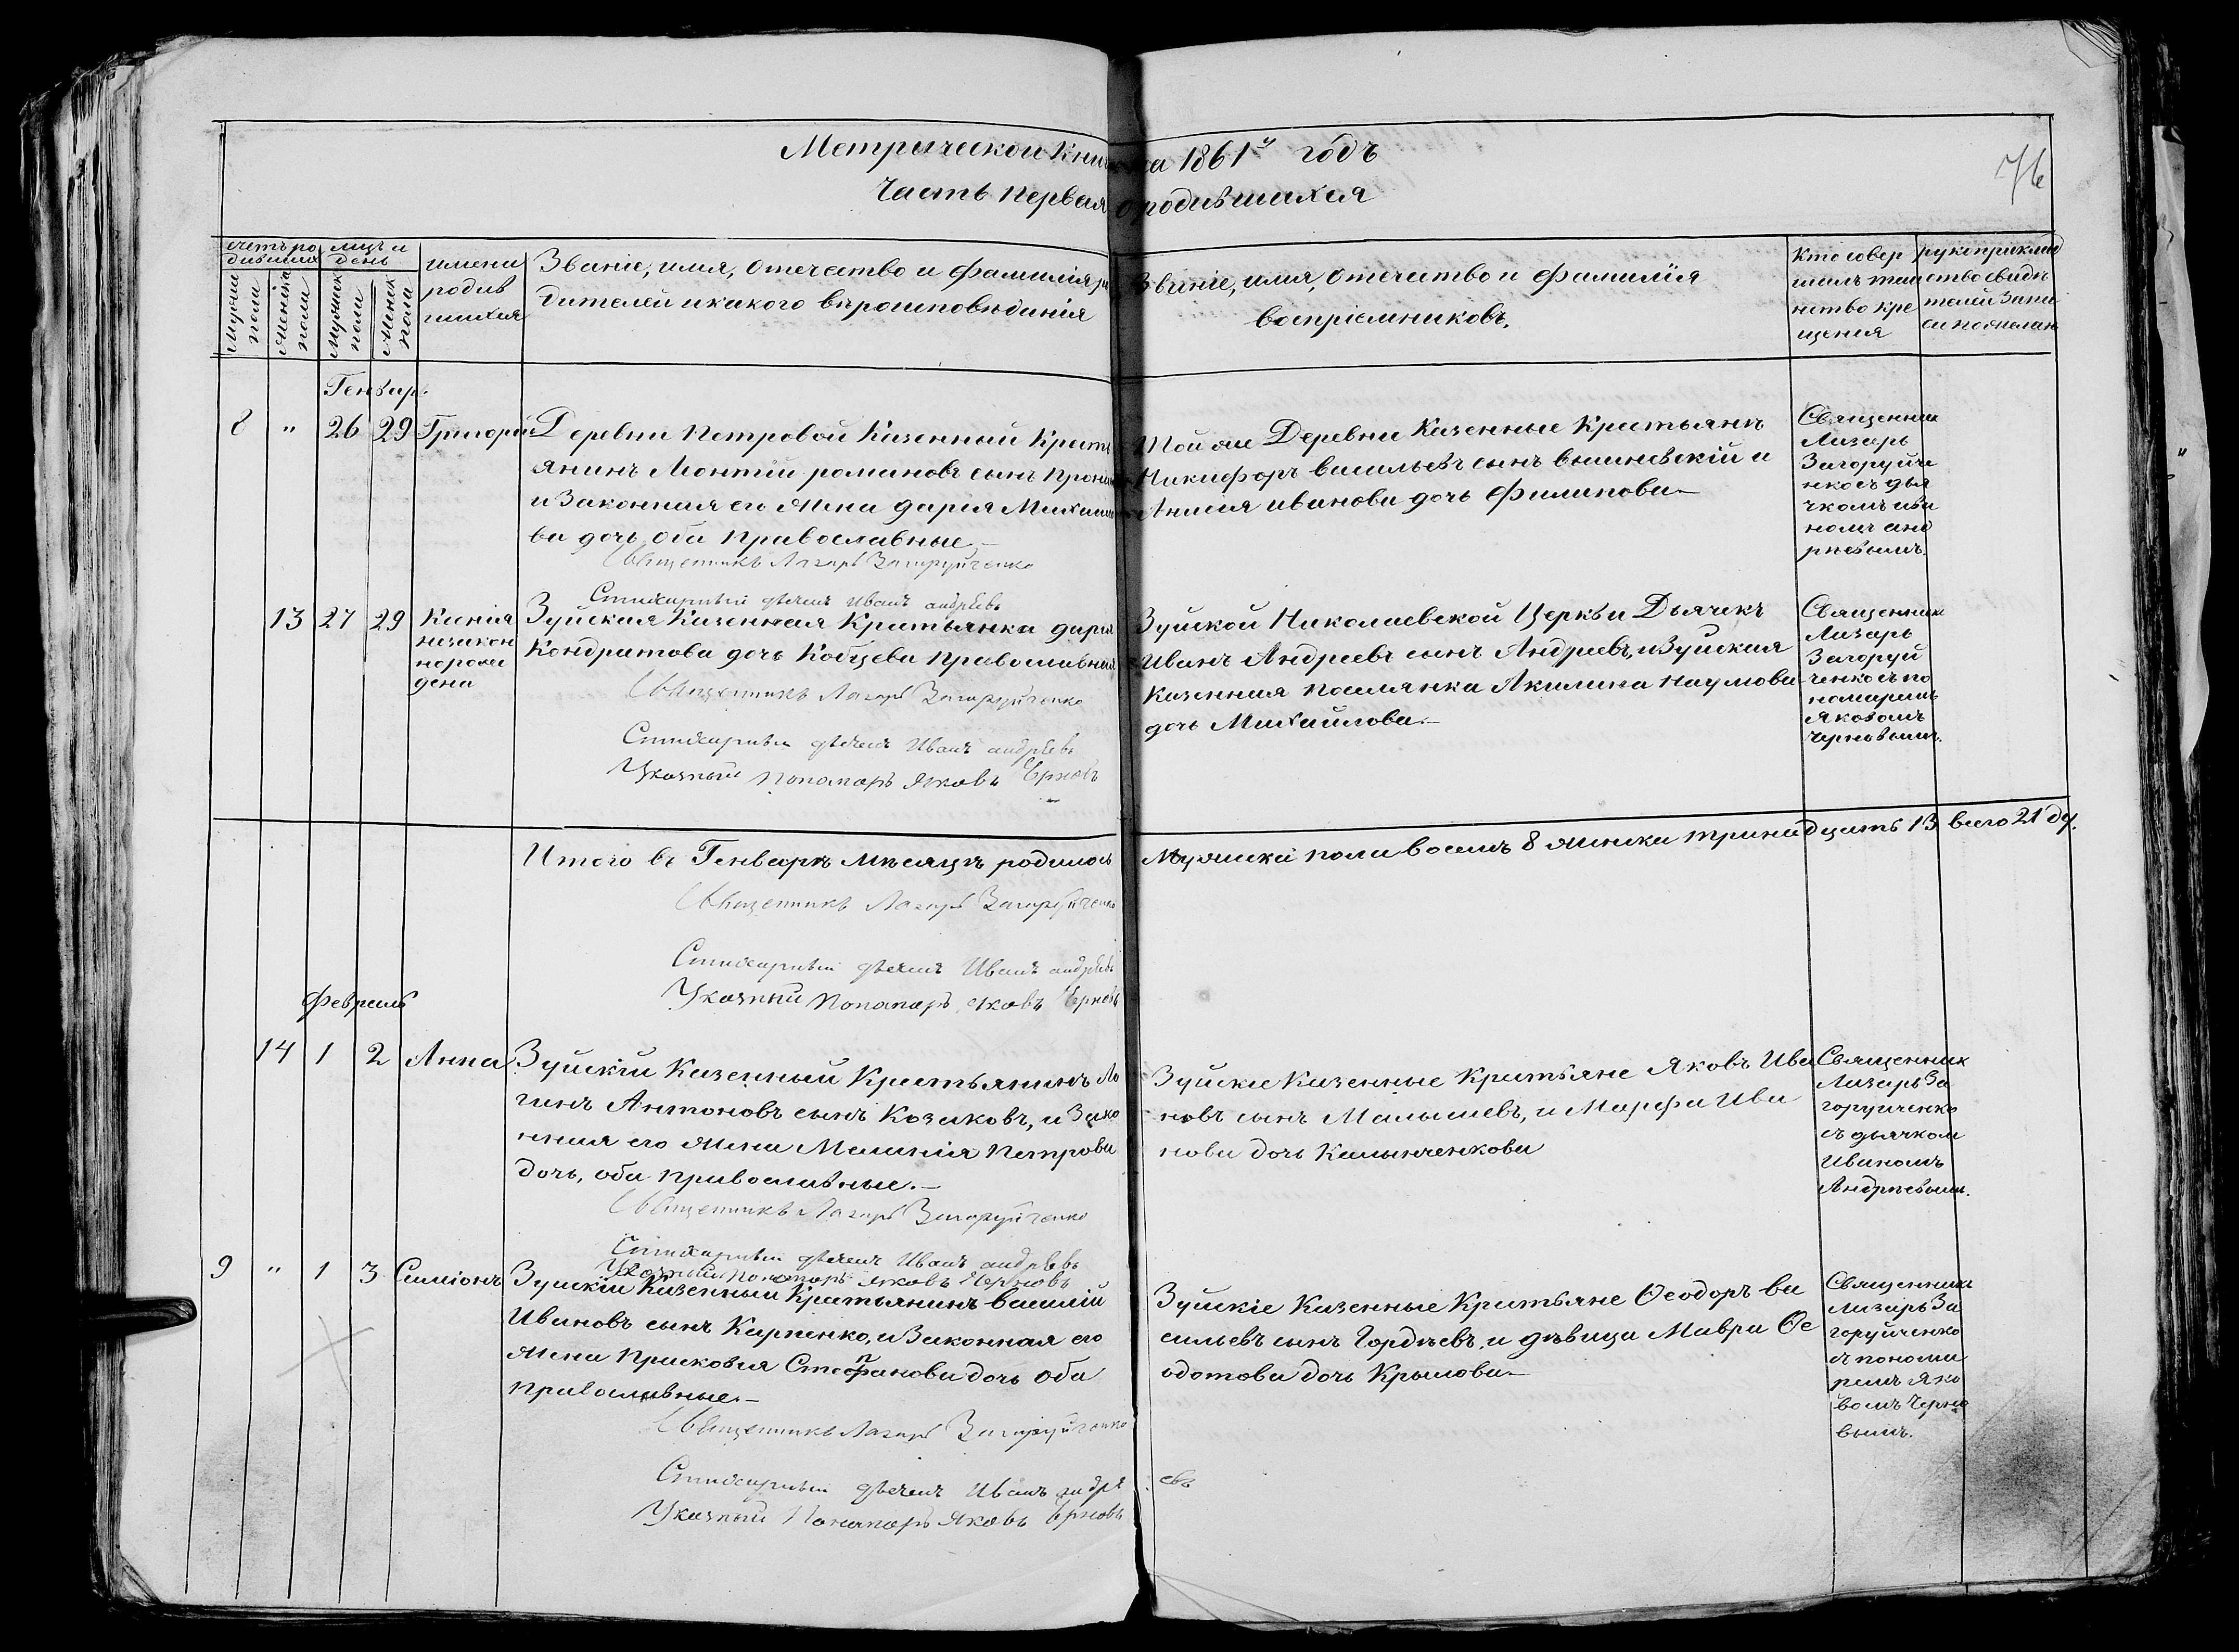 Метрической Книги на 1861й годъ
Часть первая о родившихся
76
счетъ ро
дивших
мцъ и
день
Мужеск
пола
Женска
пола
Мужеск
пола
Женск
пола
имена
родив
шихся
Званіе, имя, Отечество и Фамилія ро
дителей и какого вѣроисповѣданія
Званіе, имя, Отечество и Фамилія
воспріемниковъ.
Кто совер
шалъ таи
нство кре
щения
рукоприклад
ство свидѣ
телей Запи
си по желан
Генварь
8 " 26 29 Григорій
Деревни Петровой Казенный Кресть
янинъ Леонтій романовъ сынъ
и Законная его Жена дарія Михаило
ва дочь оба Православные.
Священникъ Лазарь Загоруйченко
Стихарный дьячекъ Иванъ андрѣевъ
Той же Деревни Казенные Крестьянъ
Никифоръ васильевъ сынъ вышневскій и
Анисія иванова дочь Филипова
Священник
Лазарь
Загоруйче
нко съ дья
чкомъ ива
номъ анд
рѣевымъ.
13 27 29 Ксенія
незакон
норож
дена
Зуйская Казенная Крестьянка дарія
Кондратова дочь Кобцева Православная
Священникъ Лазарь Загоруйченко
Стихарный дьячекъ Иванъ андрѣевъ
Указный Понамарь Яковъ Чрновъ
Зуйской Николаевской Церкви Дьячекъ
Иванъ Андреевъ сынъ Андреевъ, и Зуйская
Казенная поселянка Акилина Наумова
дочь Михайлова.
Священник
Лазарь
Загоруй
ченко съ по
номаремъ
Яковомъ
Черновымъ.
Итого въ Генварѣ мѣсяцѣ родилось
Мужска пола восемь 8 женска тринадцать 13 всего 21 ду.
Священникъ Лазарь Загоруйченко
Стихарный дьячекъ Иванъ андрѣевъ
Указный Понамарь Яковъ Чрновъ
Февраль
14 1 2 Анна
Зуйскій Казенный Крестьянинъ Ло
гинъ Антоновъ сынъ Козаковъ, и Зако
нная его жена Меланія Петрова
дочь, оба православные.
Священникъ Лазарь Загоруйченко
Стихарный дьячекъ Иванъ андрѣевъ
Указный Понамарь Яковъ Чрновъ
Зуйскіе Казенные Крестьяне Яковъ Ива
новъ сынъ Малышевъ, и Марфа Ива
нова дочь Калынченкова
Священник
Лазарь За
горуйченко
съ дьячком
Иваномъ
Андрѣевым.
9 " 1 3 Симіонъ
Зуйскій Казенный Крестьянинъ василій
Ивановъ сынъ Карпенко, и Законная его
Жена Прасковія Стефанова дочь оба
православные.
Священникъ Лазарь Загоруйченко
Стихарный дьячекъ Иванъ андрѣ евъ
Указный Понамарь Яковъ Чрновъ
Зуйскіе Казенные Крестьяне Ѳеодоръ ва
сильевъ сынъ Гордѣевъ, и дѣвица Мавра Ѳе
одотова дочь Крылова
Священник
Лазарь За
горуйченко
съ понома
ремъ Яко
вомъ Черно
вымъ.